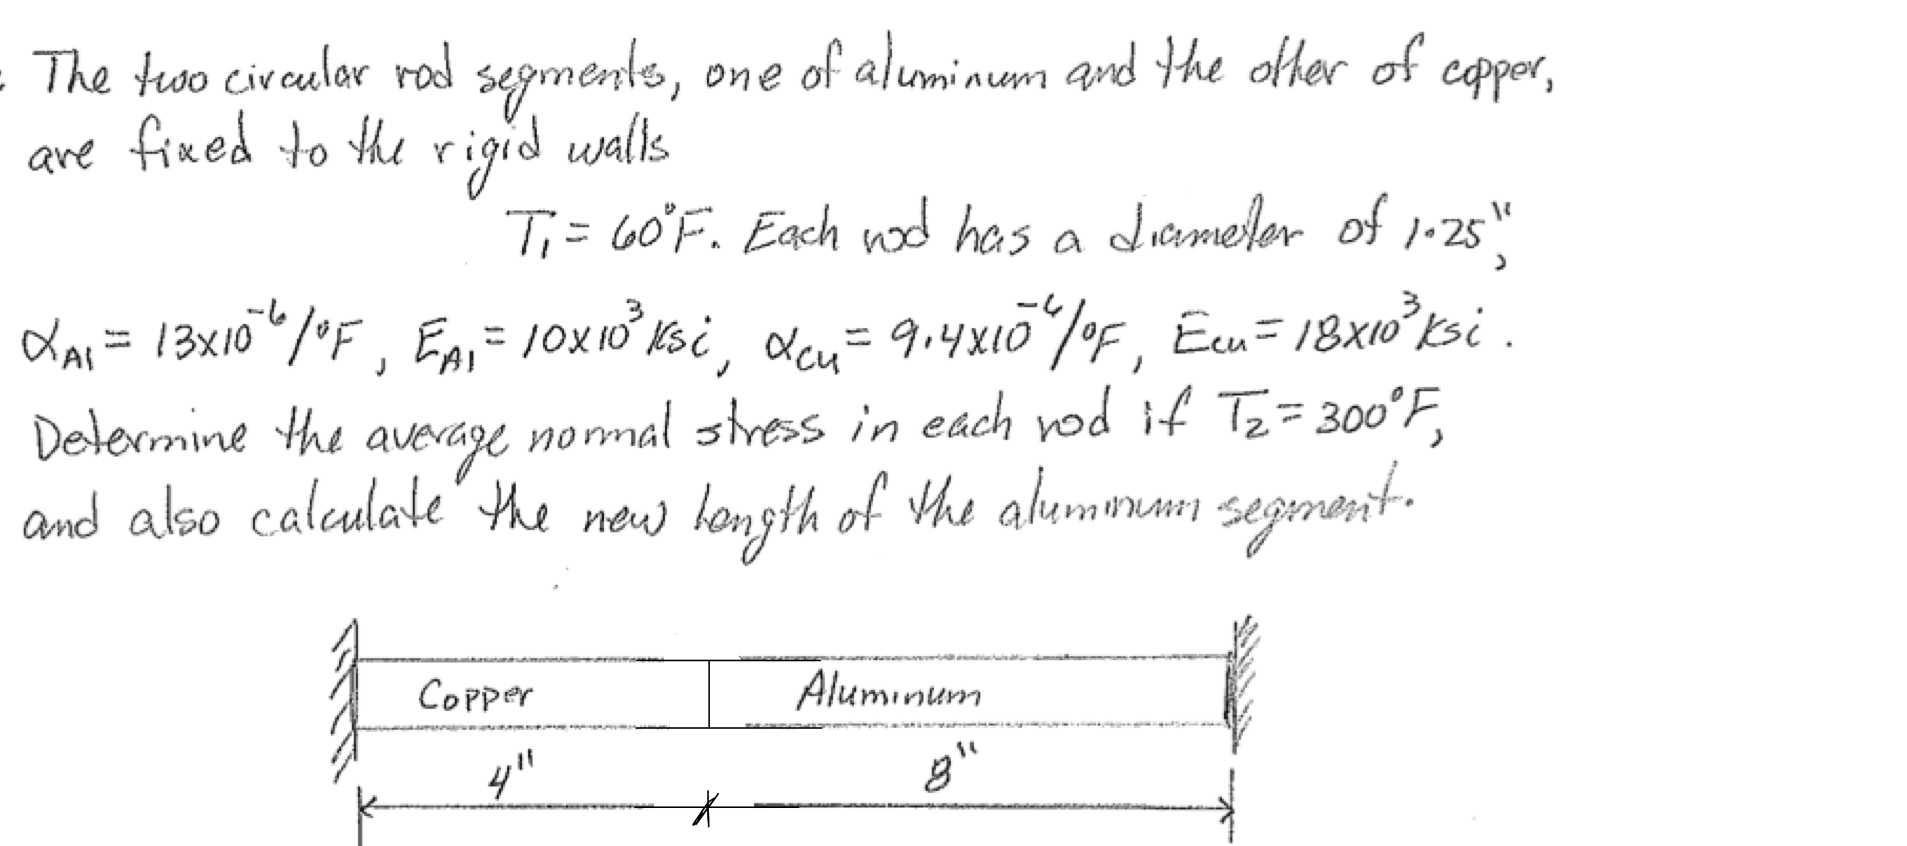 The two circular rod segments, one of aluminum and the other of copper,
are fixed to the rigid walls
T₁ = 60°F. Each rod has a diameter of 1.25",
αAl = 13x10⁻⁶/°F, EAl = 10x10³ ksi, αcu = 9.4x10⁻⁶/°F, Ecu = 18x10³ ksi.
Determine the average normal stress in each rod if T₂ = 300°F,
and also calculate the new length of the aluminum segment.
Copper Aluminum
4" 8"